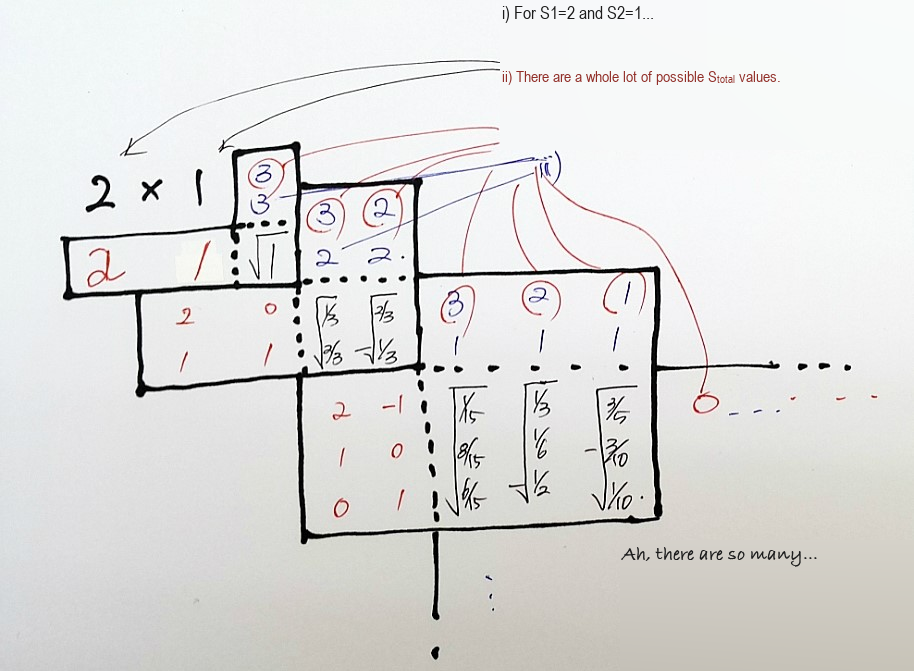 i) For S1=2 and S2=1...
ii) There are a whole lot of possible Stotal values.
iii)
2 × 1
3
3
3 2
2 2.
2 1
√1
2 0 √1/3 √2/3
1 1 √2/3 -√1/3
3 2 1
1 1 1
2 -1 √1/15 √1/3 √3/5
1 0 √8/15 √1/6 -√3/10
0 1 √6/15 -√1/2 √1/10.
0
Ah, there are so many...